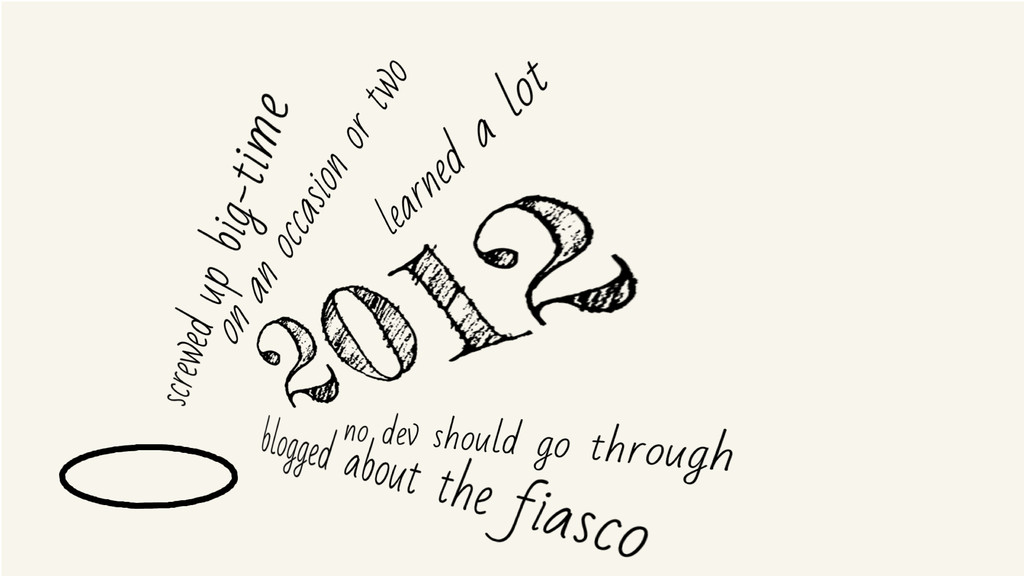 screwed up big-time
on an occasion or two
learned a lot
2012
no dev should go through
blogged about the fiasco